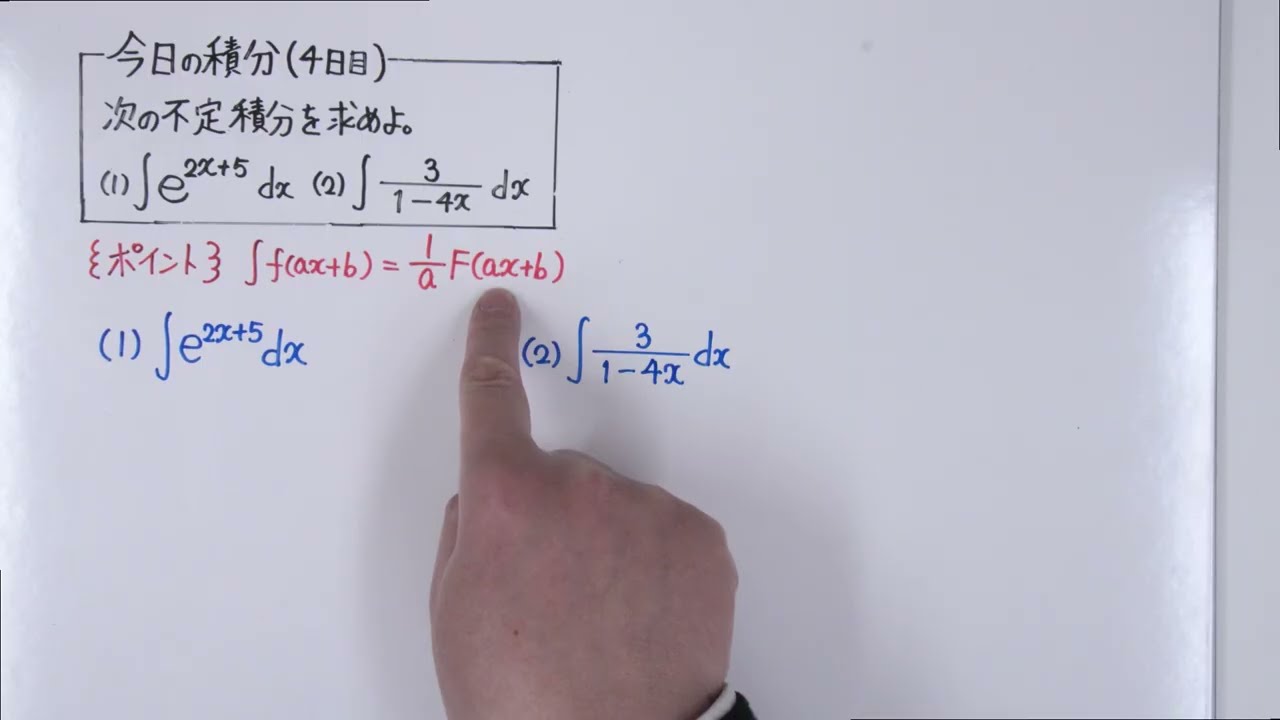 今日の積分(4日目)
次の不定積分を求めよ。
(1) ∫e^{2x+5} dx (2) ∫ 3/(1-4x) dx
{ポイント} ∫f(ax+b) = 1/a F(ax+b)
(1) ∫e^{2x+5}dx (2) ∫ 3/(1-4x) dx